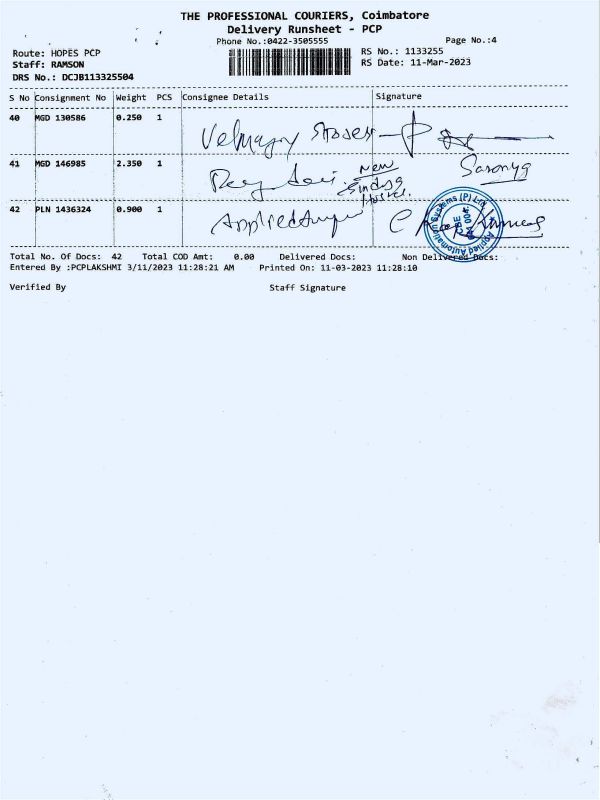 THE PROFESSIONAL COURIERS, Coimbatore
Delivery Runsheet - PCP
Phone No.:0422-3505555
Page No.:4
Route: HOPES PCP
RS No.: 1133255
Staff: RAMSON
RS Date: 11-Mar-2023
DRS No.: DCJB113325504
S No Consignment No Weight PCS Consignee Details Signature
40 MGD 130586 0.250 1
41 MGD 146985 2.350 1 New
42 PLN 1436324 0.900 1
Applied Automation Systems (P) Ltd
Total No. Of Docs: 42 Total COD Amt: 0.00 Delivered Docs: Non Delivered Docs:
Entered By :PCPLAKSHMI 3/11/2023 11:28:21 AM Printed On: 11-03-2023 11:28:10
Verified By Staff Signature